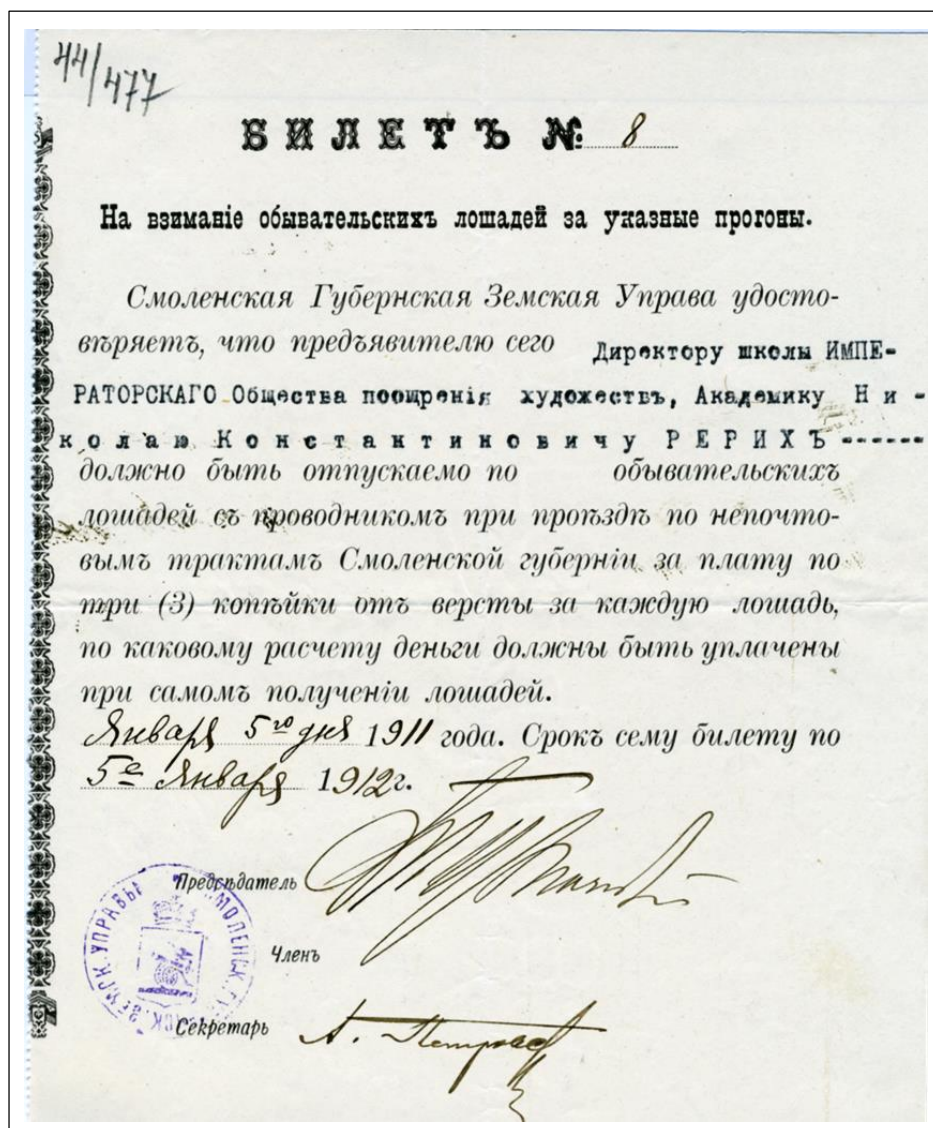 44/477
БИЛЕТЪ № 8
На взиманіе обывательскихъ лошадей за указные прогоны.
Смоленская Губернская Земская Управа удосто-
вѣряетъ, что предъявителю сего Директору школы ИМПЕ-
РАТОРСКАГО Общества поощренія художествъ, Академику Н и -
к о л а ю К о н с т а н т и н о в и ч у Р Е Р И Х Ъ ------
должно быть отпускаемо по обывательскихъ
лошадей съ проводникомъ при проѣздѣ по непочто-
вымъ трактамъ Смоленской губерніи за плату по
три (3) копѣйки отъ версты за каждую лошадь,
по каковому расчету деньги должны быть уплачены
при самомъ полученіи лошадей.
Января 5го дня 1911 года. Срокъ сему билету по
5е Января 1912г.
Предсѣдатель
Членъ
Секретарь А.
СМОЛЕНСК. ЗЕМСК. УПРАВЫ